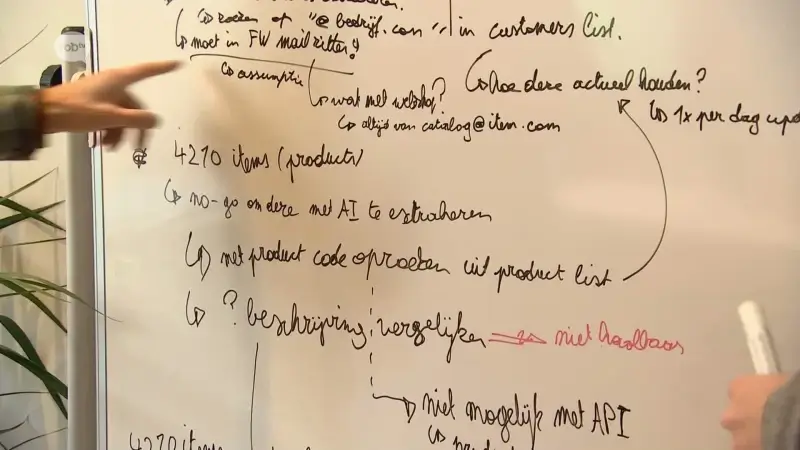 ↳ zoeken op "@bedrijf.com" in customers list.
↳ moet in FW mail zitten!
↳ assumptie
↳ wat met webshop?
↳ hoe deze actueel houden?
↳ altijd van catalog@item.com
↳ 1x per dag
4210 items (products)
↳ no-go om deze met AI te extraheren
↳ met product code opzoeken uit product list
↳ ? beschrijving vergelijken ⇒ niet haalbaar
→ niet mogelijk met API
4210 items